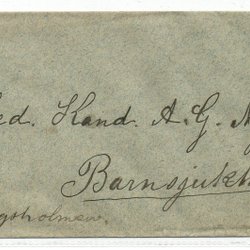 ed. Kand. A. G. N
Barnsjukh
gsholmen.